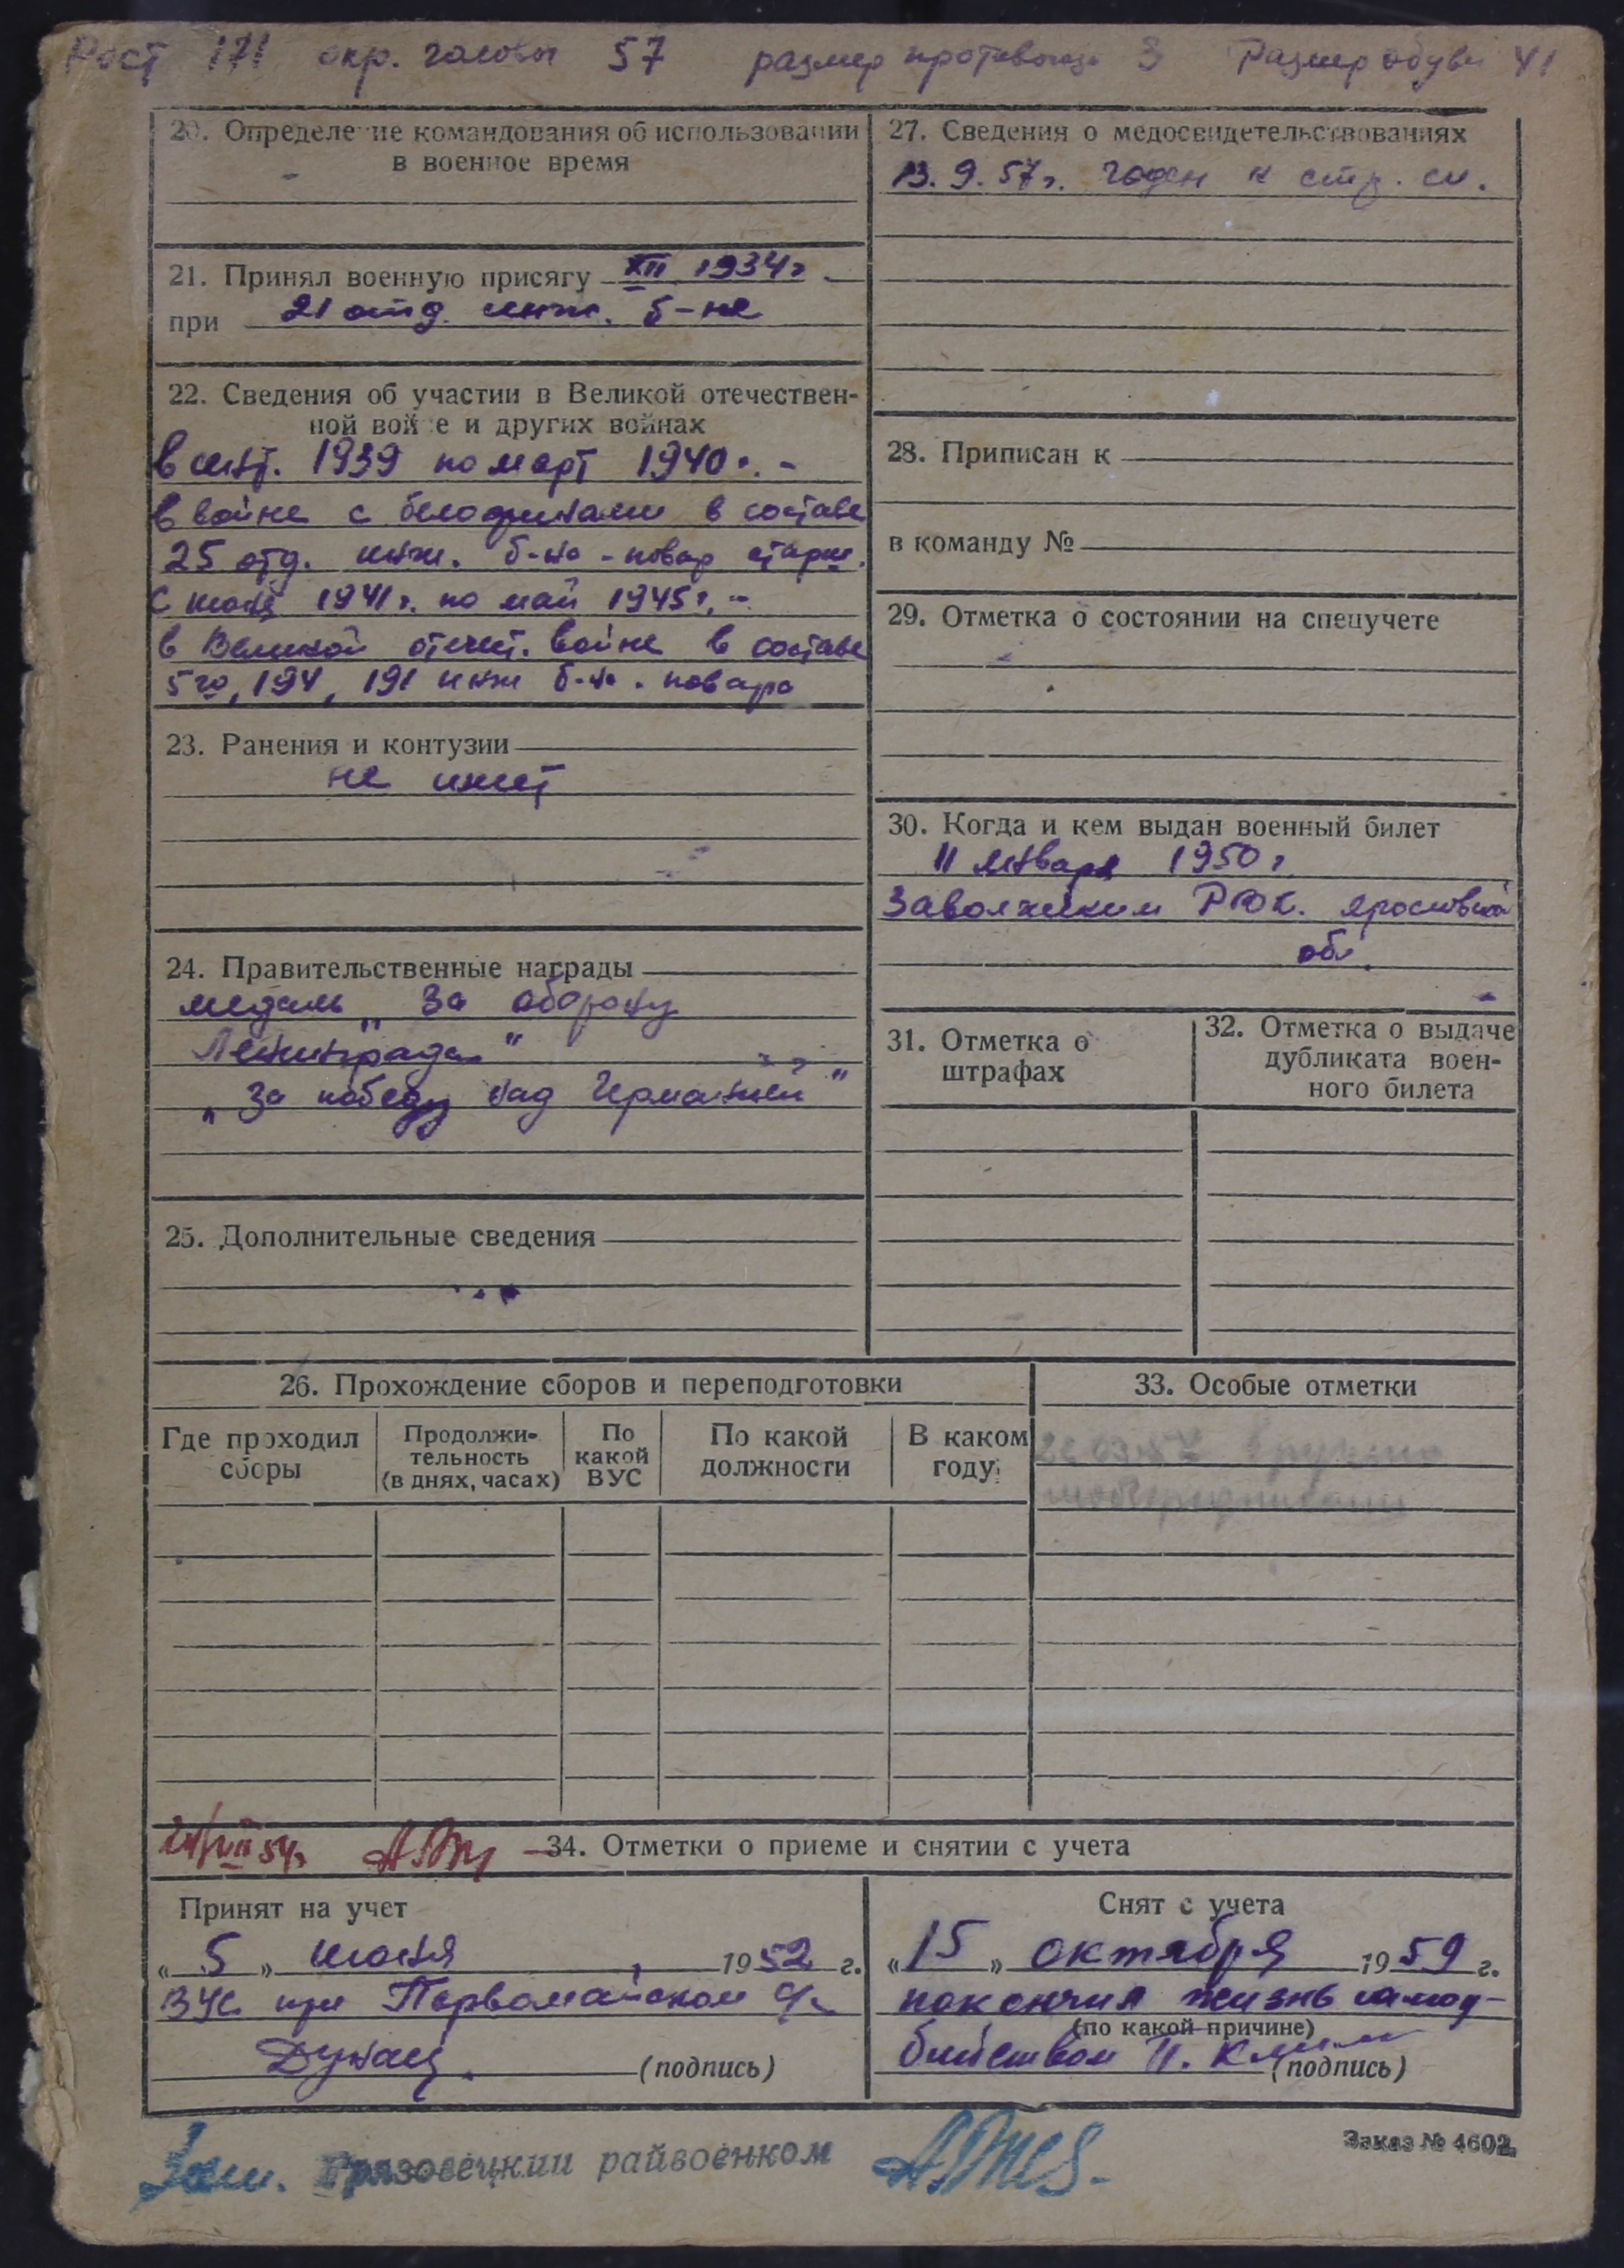 Рост 171 окр. головы 57 размер противогаза 3 Размер обуви 41
20. Определение командования об использовании
в военное время
21. Принял военную присягу XII 1934 г
при 21 отд. инж. б-не
22. Сведения об участии в Великой отечествен-
ной войне и других войнах
1939 по март 1940 г. -
в войне с белофинами в составе
25 отд. инж. б-на - повар старш.
с июня 1941 г. по май 1945 г. -
в Великой отечест. войне в составе
5го, 194, 191 инж б-на. повара
23. Ранения и контузии
не имеет
24. Правительственные награды
медаль „За оборону
Ленинграда"
„За победу над Германией"
25. Дополнительные сведения
26. Прохождение сборов и переподготовки
Где проходил
сборы
Продолжи-
тельность
(в днях, часах)
По
какой
ВУС
По какой
должности
В каком
году
27. Сведения о медосвидетельствованиях
13. 9. 57 г. годен к стр. сл.
28. Приписан к
в команду №
29. Отметка о состоянии на спецучете
30. Когда и кем выдан военный билет
11 января 1950 г.
Заволжским РВК. Ярославской
обл.
31. Отметка о
штрафах
32. Отметка о выдаче
дубликата воен-
ного билета
33. Особые отметки
34. Отметки о приеме и снятии с учета
Принят на учет
„5" июня 1952 г.
ВУС при Первомайском с/с
(подпись)
Снят с учета
„15" октября 1959 г.
покончил жизнь самоу-
(по какой причине)
бийством
(подпись)
Грязовецкий райвоенком
Заказ № 4602.